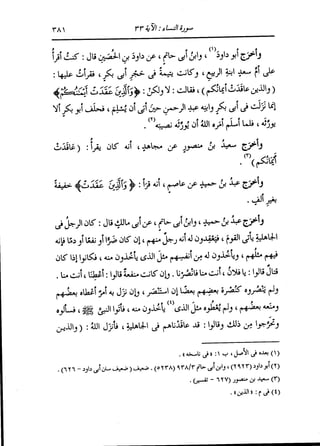 سورة النساء : الآية ٣٣ ٣٨١
وأخرج أبو داود(١) ، وابنُ أبى حاتمٍ ، عن داودَ بنِ الحُصَينِ قال : كنتُ أقرأُ
على أمِّ سعدٍ ابنةِ الربيعِ ، وكانت يتيمةً فى حَجْرِ أبى بكرٍ ، فقرأتُ عليها :
( والذين عاقَدَتْ أيمانُكم ) ، فقالت : لا ولكن : ﴿وَالَّذِينَ عَقَدَتْ أَيْمَٰنُكُمْ﴾
إنما نزلت فى أبى بكرٍ وابنِه عبدِ الرحمنِ حينَ أبَى أن يُسْلِمَ ، فحلَف أبو بكرٍ ألّا
يورثَه ، فلما أسلَم أمَره اللهُ أن يُورثَه نصيبَه(٢) .
وأخرج سعيدُ بنُ منصورٍ عن مجاهدٍ ، أنه كان يقرأُ : ( عاقَدَتْ
أيمانُكم )(٣) .
وأخرج عبدُ بنُ حميدٍ عن عاصمٍ ، أنه قرَأ : ﴿وَالَّذِينَ عَقَدَتْ﴾ خفيفةً
بغيرِ ألفٍ .
وأخرج عبدُ بنُ حميدٍ ، وابنُ أبى حاتمٍ ، عن أبى مالكٍ قال : كان الرجلُ فى
الجاهليةِ يأتى القومَ ، فيعقِدون له أنه رجلٌ منهم ، إن كان ضَرًّا أو نفعًا أو دمًا فإنه
فيهم مثلُهم ، ويأخذون له مِن أنفسِهم مثلَ الذى يأخذون منه ، فكانوا إذا كان
قتالٌ قالوا : يا فلانُ ، أنت منا فانصُرْنا . وإن كانت منفعةٌ قالوا : أعطِنا ، أنت منا .
ولم ينصُروه كنُصرةِ بعضِهم بعضًا إن استنصَر ، وإن نزَل به أمرٌ أعطاه بعضُهم
ومنَعه بعضُهم ، ولم يُعطوه مثلَ الذى(٤) يأخذون منه ، فأتَوا النبىَّ ﷺ ، فسألوه
وتحرَّجوا مِن ذلك وقالوا : قد عاقَدْناهم فى الجاهليةِ ، فأنزَل اللهُ : ( والذين
(١) بعده فى الأصل ، ب ١ : « فى ناسخه » .
(٢) أبو داود (٢٩٢٣) ، وابن أبى حاتم ٩٣٨/٣ (٥٢٣٨) . ضعيف (ضعيف سنن أبى داود - ٦٢٦) .
(٣) سعيد بن منصور (٦٢٧ - تفسير) .
(٤) فى م : « الذين » .